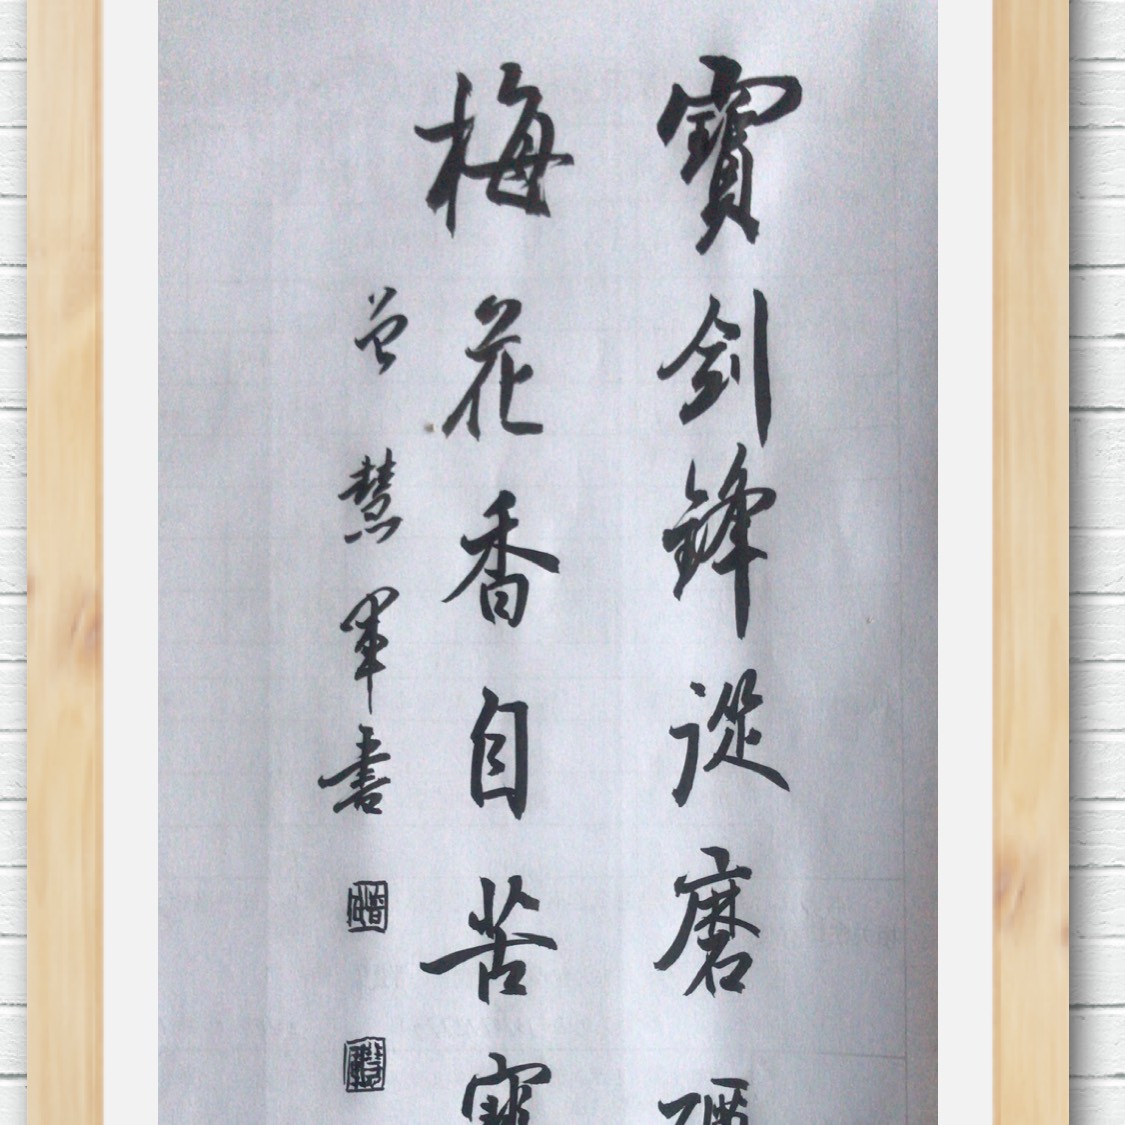 寶劍鋒從磨礪
梅花香自苦寒
曾慧軍書